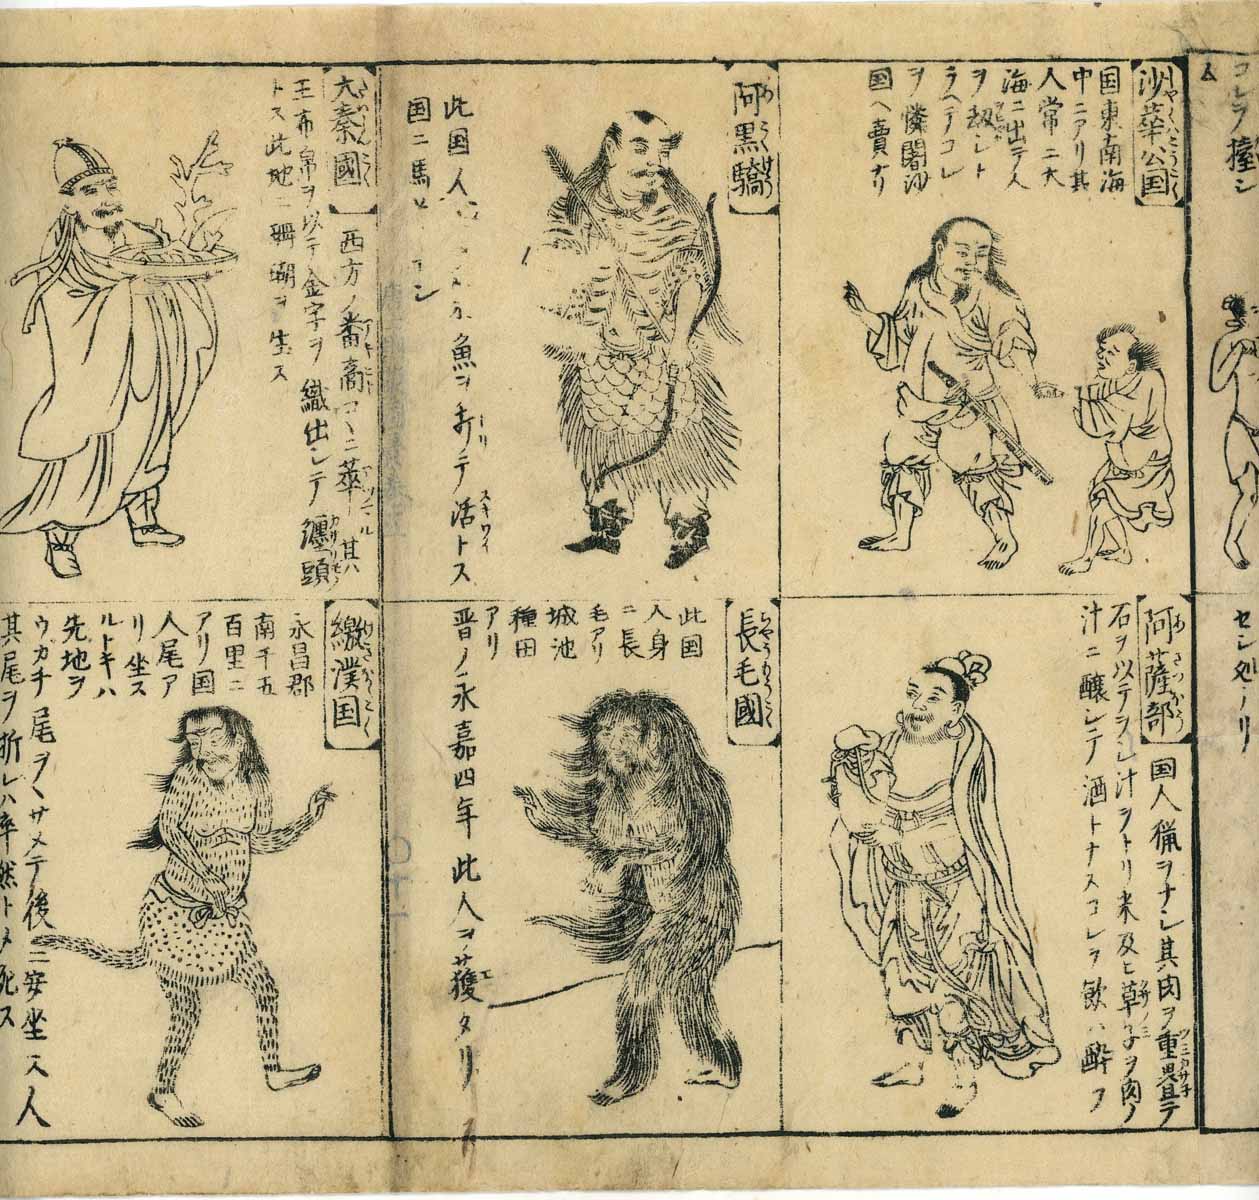 コレヲ撞シ
人
セシ処アリ
沙華公国
国東南海
中ニアリ其
人常ニ大
海ニ出テ人
ヲ劫シト
ラヘテコレ
ヲ憐闍沙
国ヘ賣ナリ
阿黒驕
此国人
魚ヲ釣テ活トス
スキワイ
国ニ馬
大秦國
西方ノ番商コヽニ萃ル其ハ
アツマル
王布帛ヲ以テ金字ヲ織出シテ纏頭
トス此地ニ珊瑚ヲ生ス
阿薩部
国人猟ヲナシ其肉ヲ重畳テ
石ヲ以テヲシ汁ヲトリ米及ヒ草子ヲ肉ノ
汁ニ醸シテ酒トナスコレヲ飲ハ酔フ
長毛國
此国
人身
ニ長
毛アリ
城池
種田
アリ
晋ノ永嘉四年此人ヲ獲タリ
繳濮国
永昌郡
南千五
百里ニ
アリ国
人尾ア
リ坐ス
ルトキハ
先地ヲ
ウガチ尾ヲヽサメテ後ニ安坐ス人
其尾ヲ折レハ卒然トメ死ス